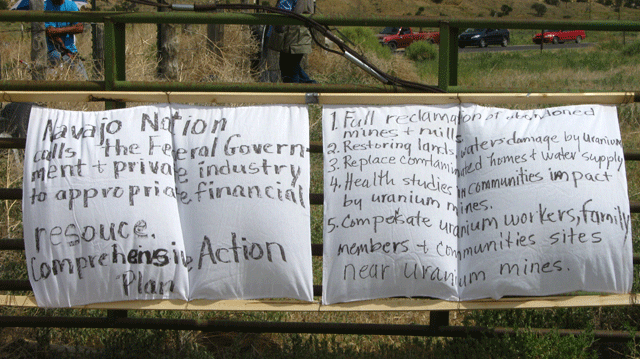 Navajo Nation
calls the Federal Govern-
ment + private industry
to appropriate financial
resouce.
Comprehensive Action
Plan
1. Full reclamation of abandoned
mines + mills
2. Restoring lands, waters damage by uranium
3. Replace contaminated homes + water supply
4. Health studies in communities impact
by uranium mines.
5. Compesate uranium workers, family
members + communities sites
near uranium mines.